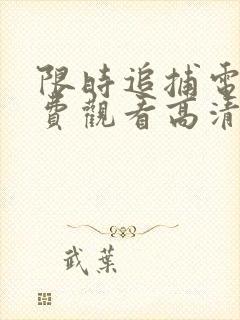 限時追捕電
費觀看高清
武葉